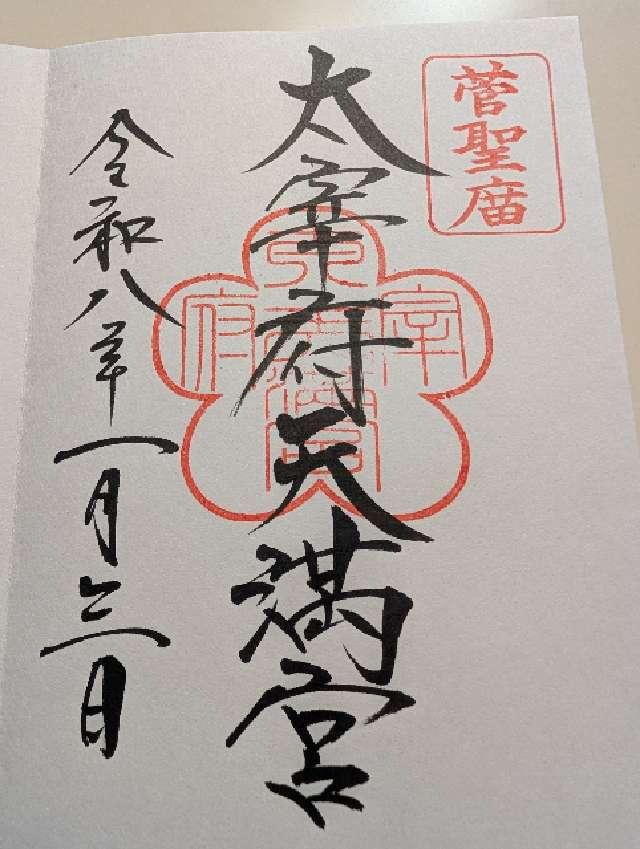 菅聖廟
太宰府天満宮
令和八年一月三日